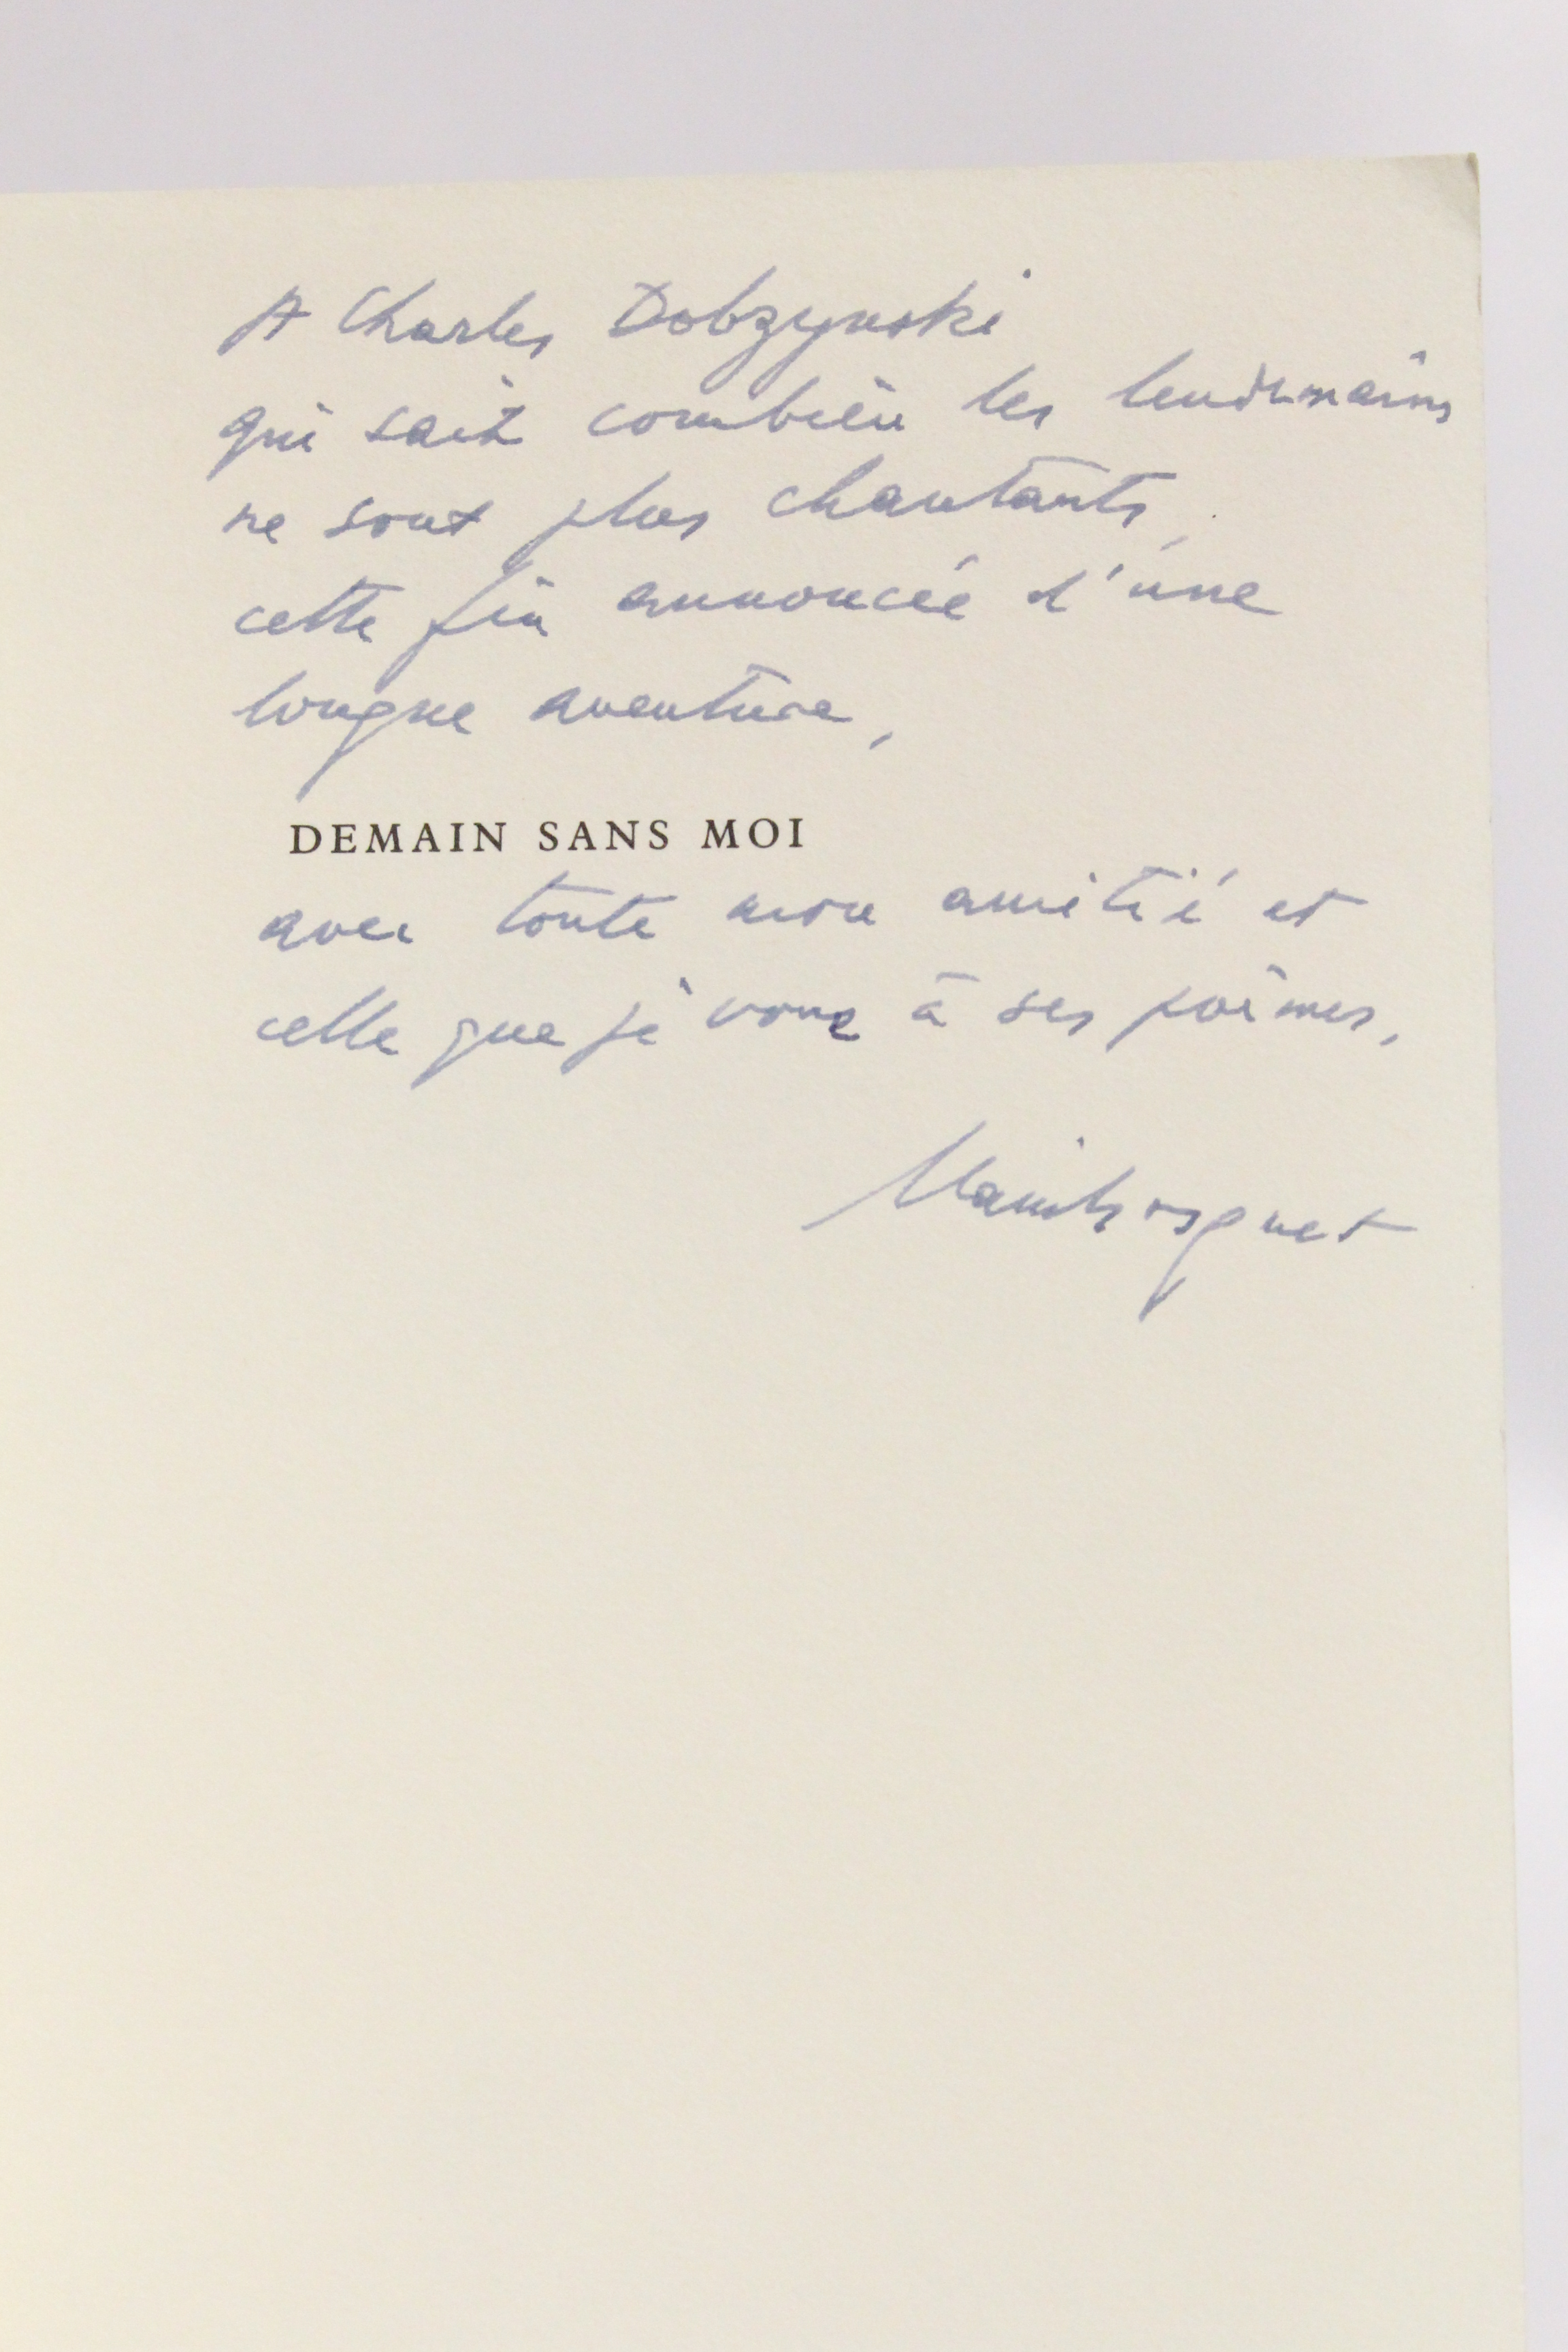 A Charles Dobzynski
qui sait combien les lendemains
ne sont plus chantants,
cette fin annoncée d'une
longue aventure,
DEMAIN SANS MOI
avec toute mon amitié et
celle que je voue à ses poèmes,
Alain Bosquet